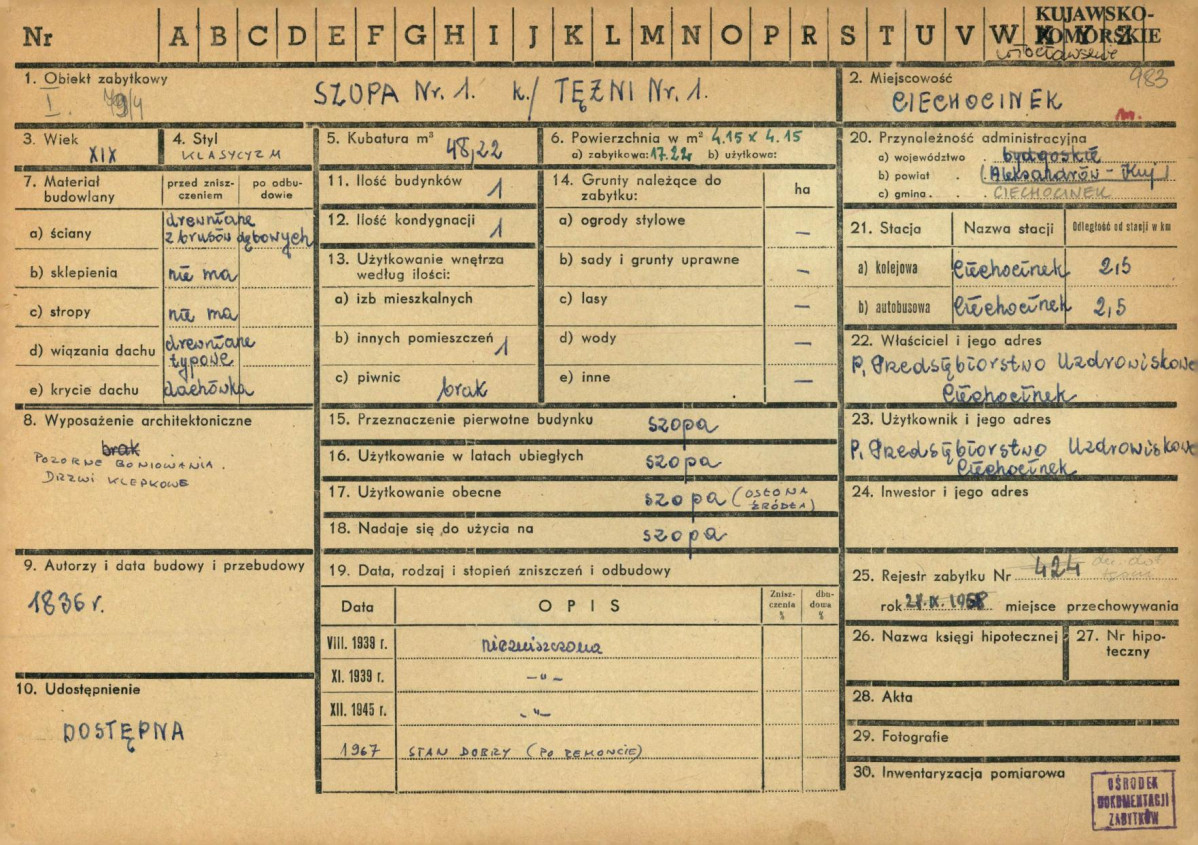 Nr A B C D E F G H I J K L M N O P R S T U V W X Y Z
KUJAWSKO-
POMORSKIE
włocławskie
1. Obiekt zabytkowy
I. 79/4
SZOPA Nr. 1. k./ TĘŻNI Nr. 1.
2. Miejscowość
983
CIECHOCINEK
3. Wiek
XIX
4. Styl
KLASYCYZM
5. Kubatura m³
48,22
6. Powierzchnia w m² 4.15 x 4.15
a) zabytkowa: 17.22 b) użytkowa:
20. Przynależność administracyjna
a) województwo bydgoskie
b) powiat (Aleksandrów-Kuj)
c) gmina CIECHOCINEK
7. Materiał budowlany
przed znisz-
czeniem
po odbu-
dowie
a) ściany
drewniane
z brusów dębowych
b) sklepienia nie ma
c) stropy nie ma
d) wiązania dachu
drewniane
typowe
e) krycie dachu dachówka
11. Ilość budynków 1
12. Ilość kondygnacji 1
13. Użytkowanie wnętrza
według ilości:
a) izb mieszkalnych
b) innych pomieszczeń 1
c) piwnic brak
14. Grunty należące do
zabytku:
ha
a) ogrody stylowe —
b) sady i grunty uprawne —
c) lasy —
d) wody —
e) inne —
21. Stacja Nazwa stacji Odległość od stacji w km
a) kolejowa Ciechocinek 2,5
b) autobusowa Ciechocinek 2,5
22. Właściciel i jego adres
P. Przedsębiorstwo Uzdrowiskowe
Ciechocinek
8. Wyposażenie architektoniczne
brak
POZORNE BONIOWANIA.
DRZWI KLEPKOWE
15. Przeznaczenie pierwotne budynku szopa
16. Użytkowanie w latach ubiegłych szopa
17. Użytkowanie obecne szopa (OSŁONA
ŹRÓDŁA)
18. Nadaje się do użycia na szopa
23. Użytkownik i jego adres
P. Przedsębiorstwo Uzdrowiskowe
Ciechocinek
24. Inwestor i jego adres
9. Autorzy i data budowy i przebudowy
1836 r.
19. Data, rodzaj i stopień zniszczeń i odbudowy
Data OPIS
Znisz-
czenia
%
dbu-
dowa
%
VIII. 1939 r. niezniszczona
XI. 1939 r. -"-
XII. 1945 r. -"-
1967 STAN DOBRY (PO REMONCIE)
25. Rejestr zabytku Nr 424
rok 28.IX.1958 miejsce przechowywania
26. Nazwa księgi hipotecznej
27. Nr hipo-
teczny
10. Udostępnienie
DOSTĘPNA
28. Akta
29. Fotografie
30. Inwentaryzacja pomiarowa
OŚRODEK
DOKUMENTACJI
ZABYTKÓW